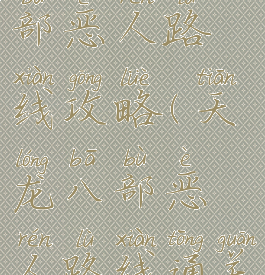 部恶人路
xiàn gōng lüè tiān
线攻略(天
lóng bā bù è
龙八部恶
rén lù xiàn tōng guān
人路线通关